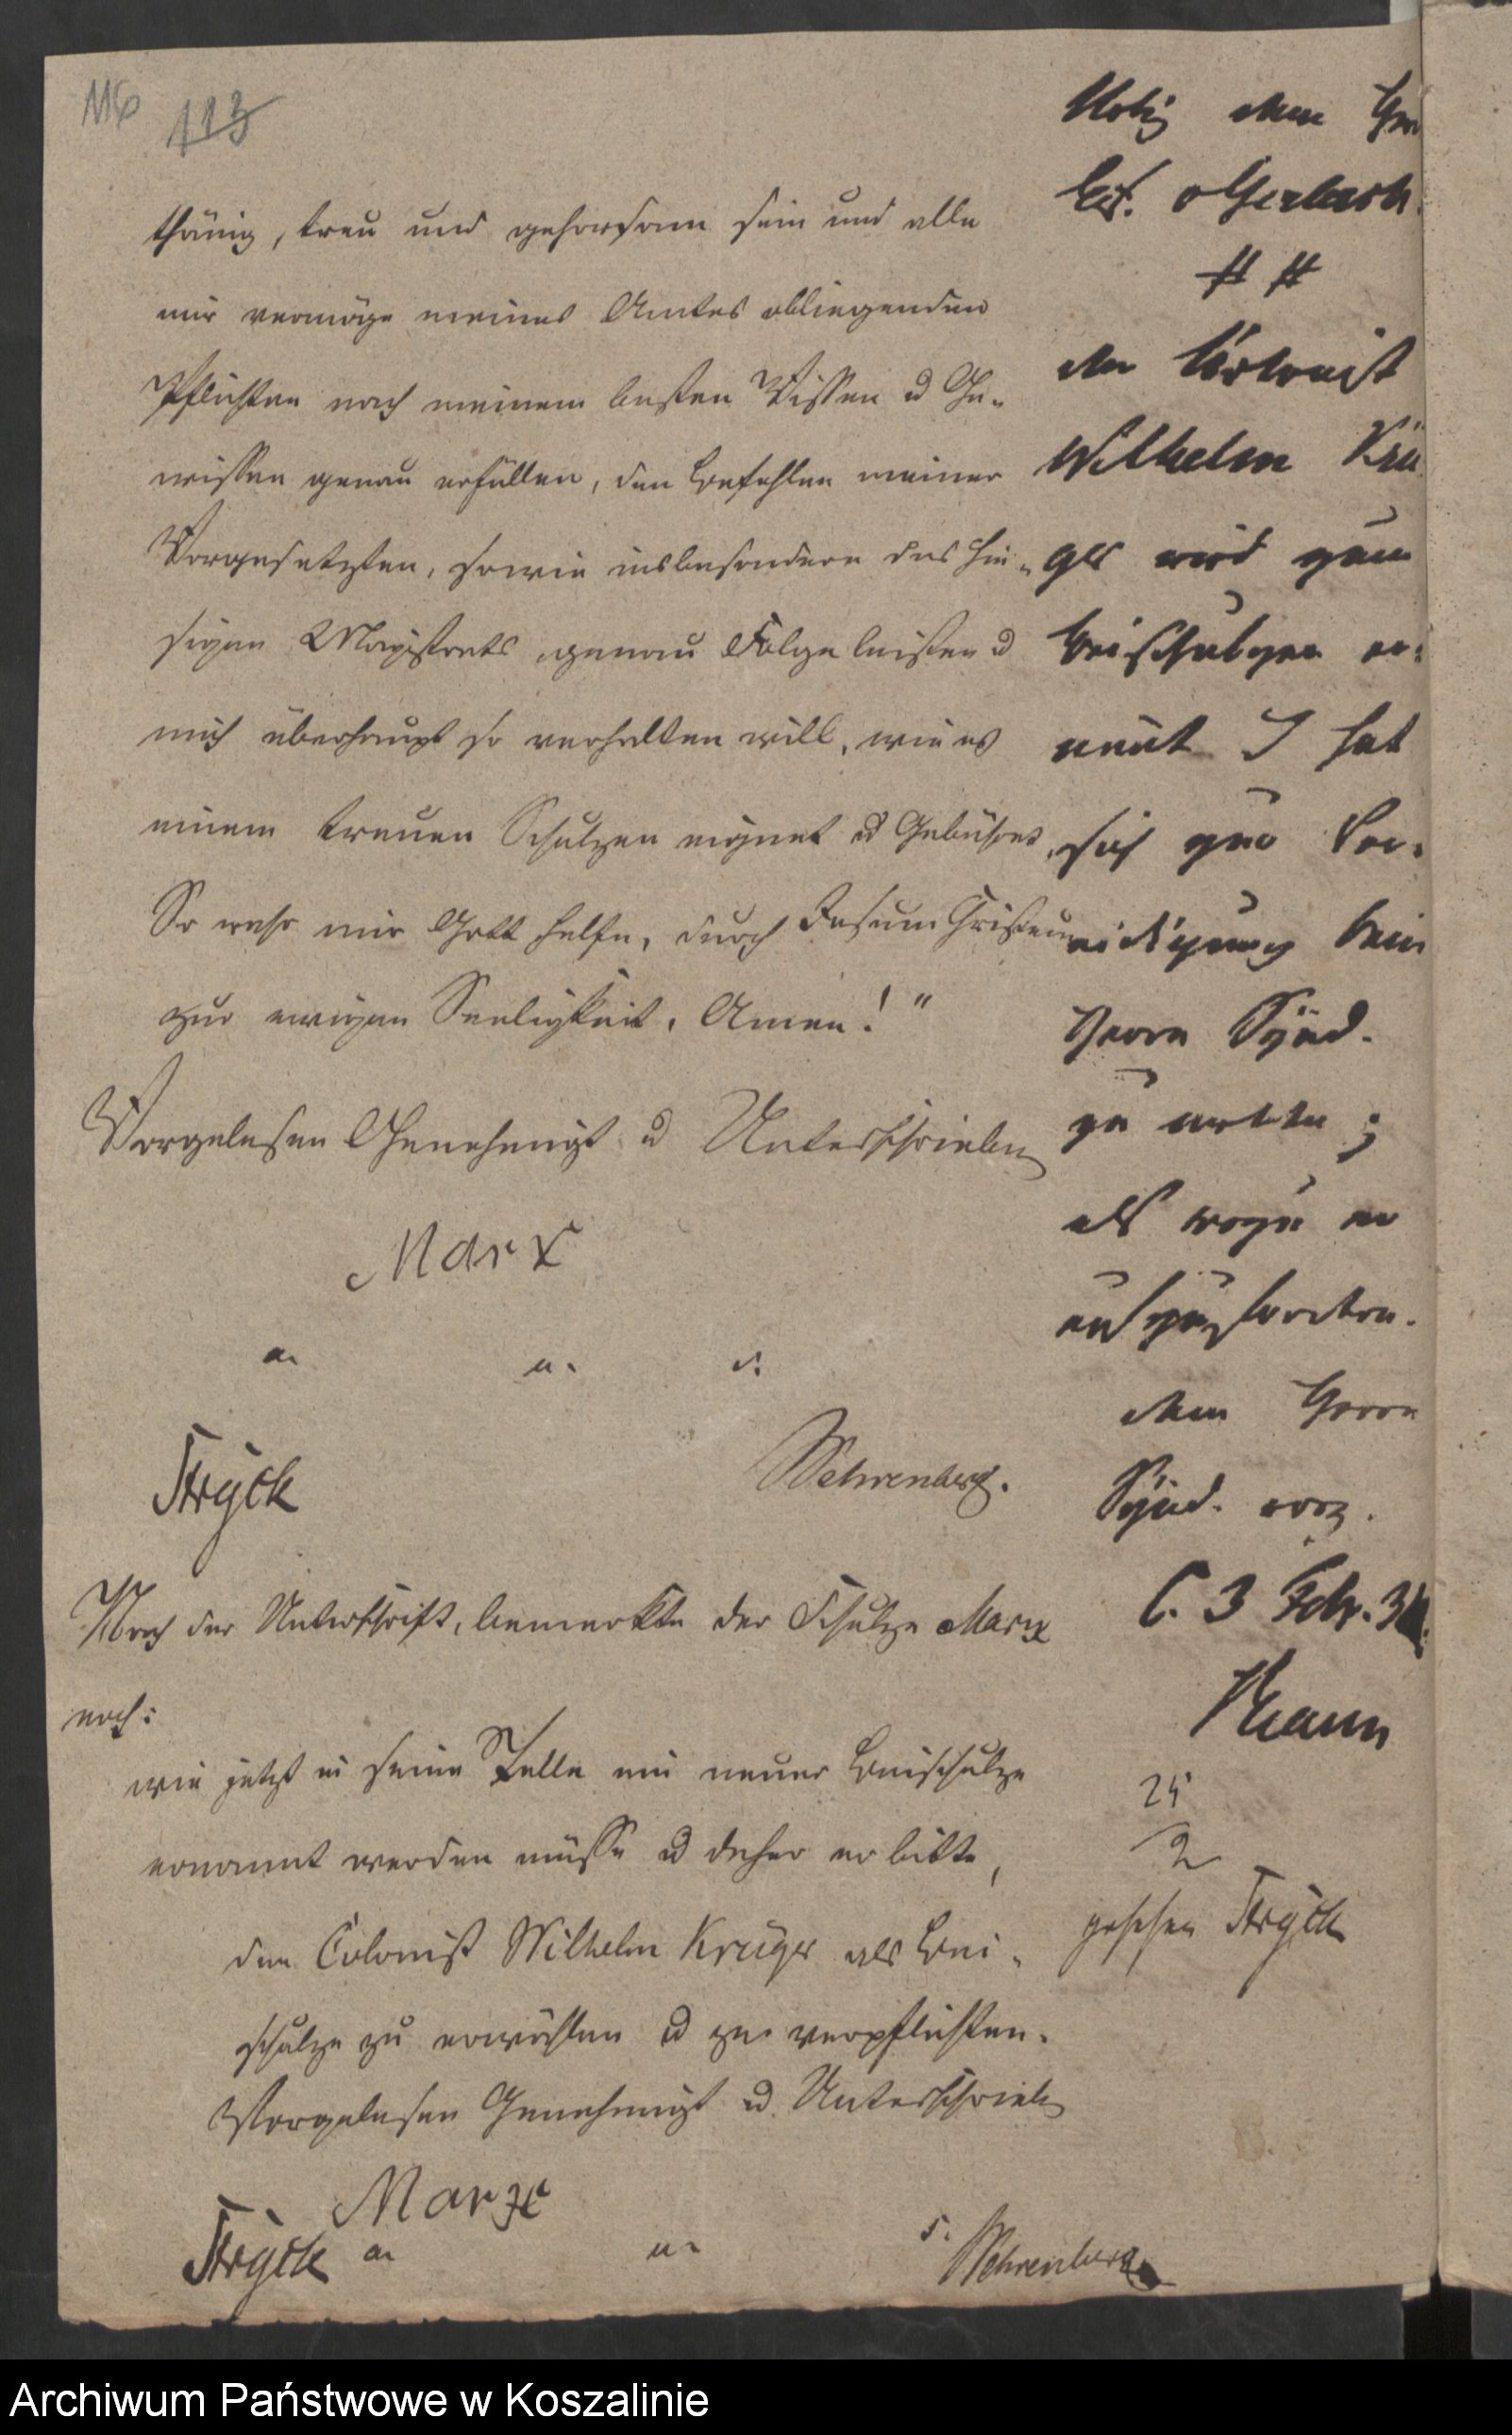 116 113
thänig, treu und gehorsam sein und alle
mir vermöge meines Amtes obliegenden
Pflichten nach meinem besten Wissen u Ge-
wissen genau erfüllen, den Befehlen meiner
Vorgesetzten, sowie insbesondere des hie-
sigen Magistrats genau Folge leisten u
mich überhaupt so verhalten will, wie es
einem treuen Schulzen eignet u Gebühret,
So wahr mir Gott helfe, durch Jesum Christum
zur ewigen Seeligkeit, Amen! "
Vorgelesen Genehmigt u Unterschrieben
Marx
a. u. s.
Stryck Wehrenberg.
Nach der Unterschrift, bemerkte der Schulze Marx
noch:
wie jetzt in seine Stelle ein neuer Beischulze
ernannt werden müsse u daher er bitte,
den Colonist Wilhelm Krüger als Bei-
schulze zu erwählen u zu verpflichten.
Vorgelesen Genehmigt u Unterschrieb
Marx
Stryck a. u. s. Wehrenberg
dem
Gerlach
der Colonist
Wilhelm Krü
ger wird zum
Beischulzen er-
nent hat
sich zur Ver-
eidigung beim
Herrn Synd.
zu melden;
als wozu er
aufzufordern.
dem Herrn
Synd. vorz.
C. 3 Febr.
Braun
25
2
gesehen Stryck
Archiwum Państwowe w Koszalinie